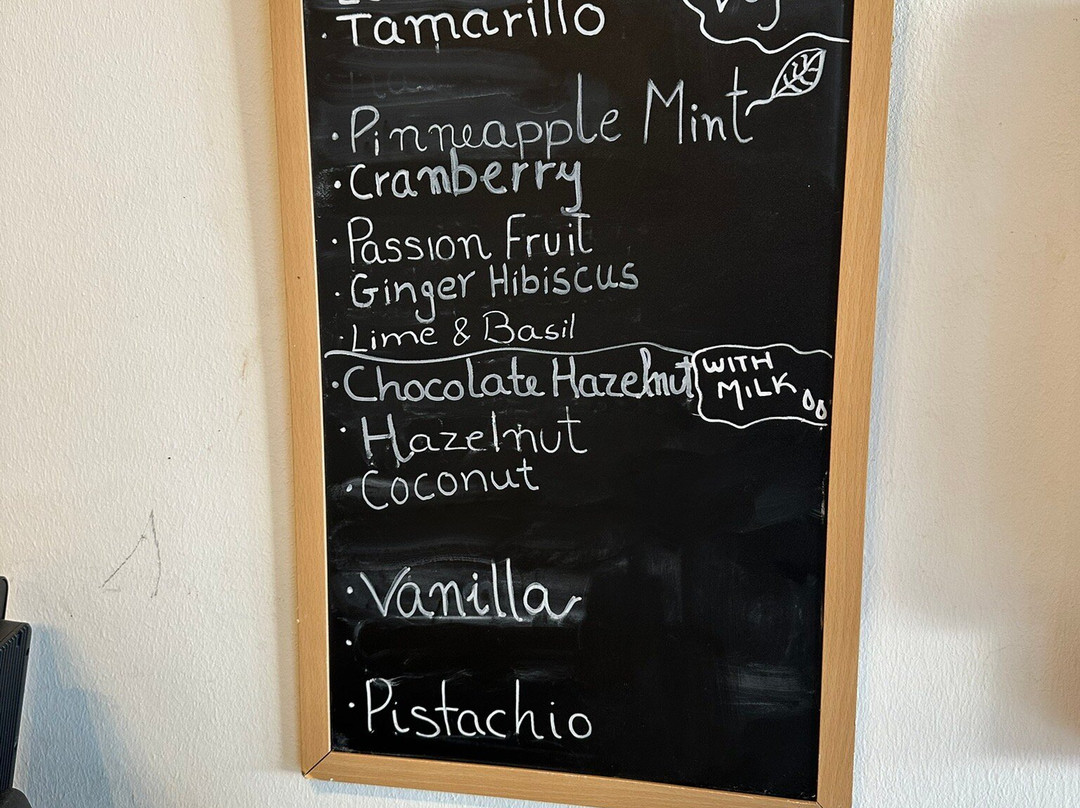 · Tamarillo
· Pinneapple Mint
· Cranberry
· Passion Fruit
· Ginger Hibiscus
· Lime & Basil
· Chocolate Hazelnut
WITH
MILK
· Hazelnut
· Coconut
· Vanilla
·
· Pistachio